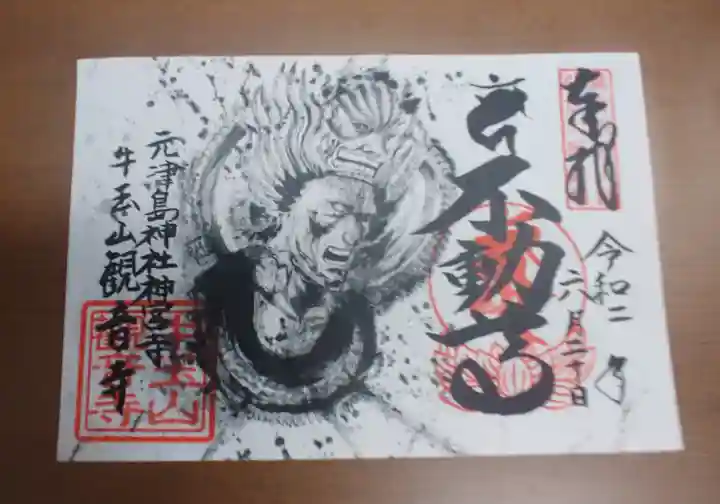 奉拝
令和二年
六月二十日
不動
元津島神社神宮寺
牛玉山観音寺